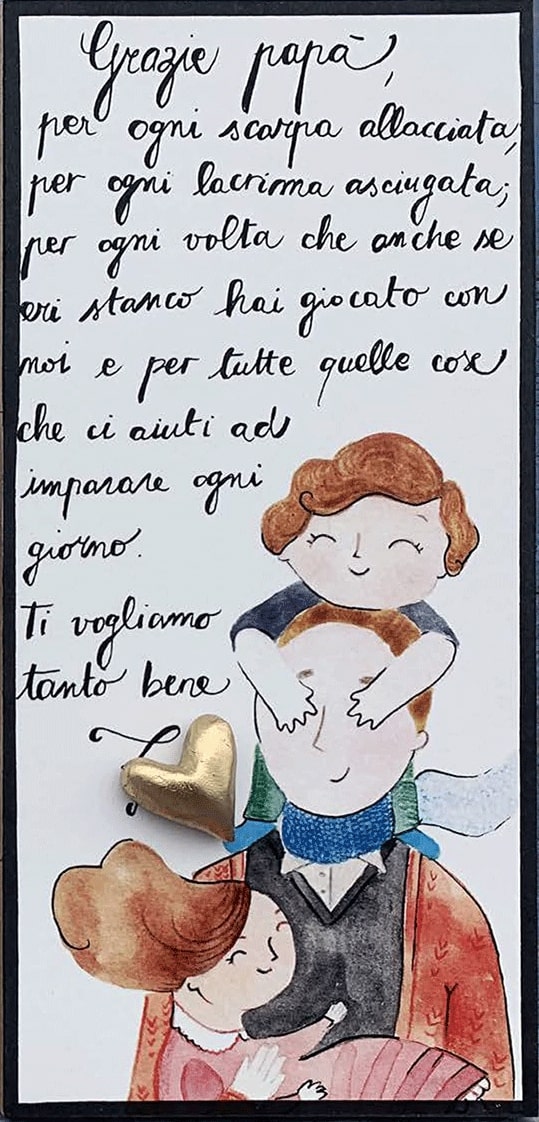 Grazie papà,
per ogni scarpa allacciata;
per ogni lacrima asciugata;
per ogni volta che anche se
eri stanco hai giocato con
noi e per tutte quelle cose
che ci aiuti ad
imparare ogni
giorno.
Ti vogliamo
tanto bene